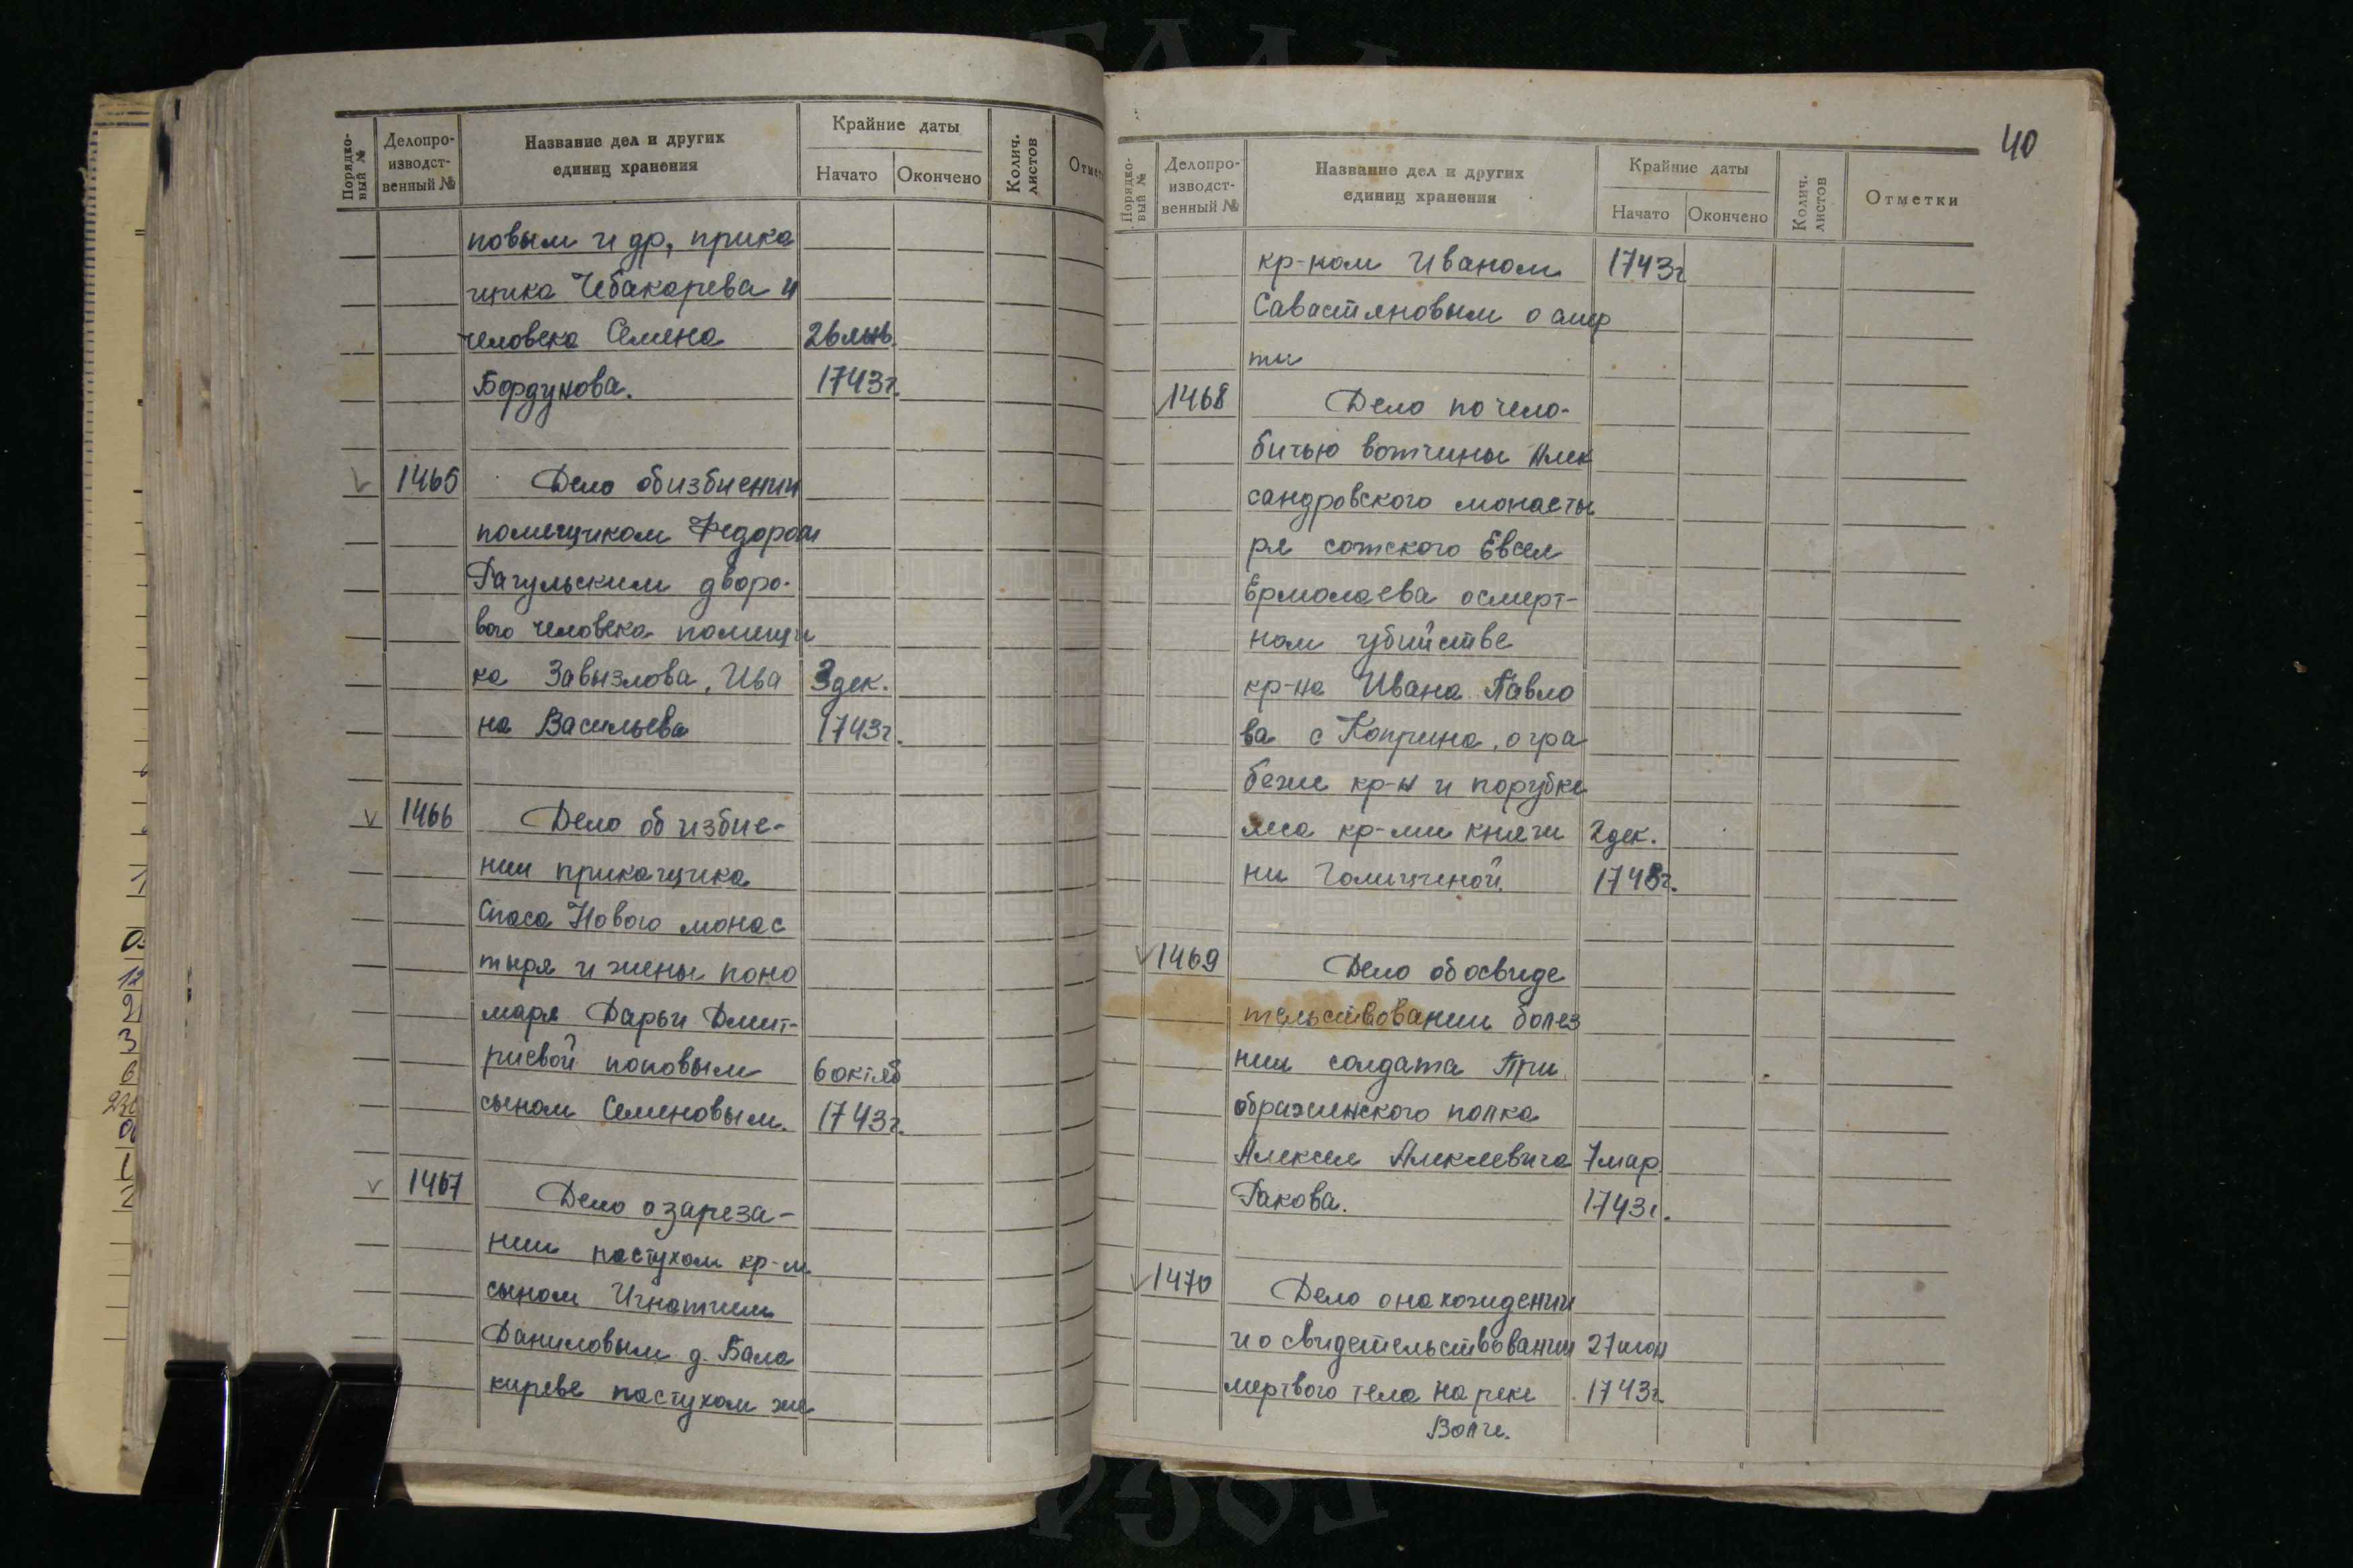 Порядко-
вый №
Делопро-
изводст-
венный №
Название дел и других
единиц хранения
Крайние даты
Начато
Окончено
Колич.
листов
Отмет
новым и др, прика
щика Чебакарева и
человека Семена 26 янв.
Бордукова. 1743г.
1465 Дело об избиении
помещиком Федором
Рагульским дворо-
вого человека помещи
ка Завызлова, Ива 3 дек.
на Васильева 1743г.
1466 Дело об избие-
нии прикащика
Спаса Нового монас
тыря и жены поно
маря Дарьи Дмит-
риевой поповым 6 октяб
сыном Семеновым. 1743г.
1467 Дело о зареза-
нии пастухом кр-м
сыном Игнатием
Даниловым д. Бала
киреве пастухом же
40
Порядко-
вый №
Делопро-
изводст-
венный №
Название дел и других
единиц хранения
Крайние даты
Начато
Окончено
Колич.
листов
Отметки
кр-ном Иваном 1743г
Савастяновым о смер
ти
1468 Дело по чело-
битью вотчины Алек
сандровского монасты
ря сотского Евсея
Ермолаева о смерт-
ном убийстве
кр-на Ивана Павло
ва с Коприна, о гра
беже кр-н и порубке
леса кр-ми княги 2 дек.
ни Голициной 1743г.
1469 Дело об освиде
тельствовании болез
нии солдата При
ображенского полка
Алексея Алексеевича 7 мар
Ракова. 1743г.
1470 Дело о нахождении
и о свидетельствовании 27 июн
мертвого тела на реке 1743г.
Волге.